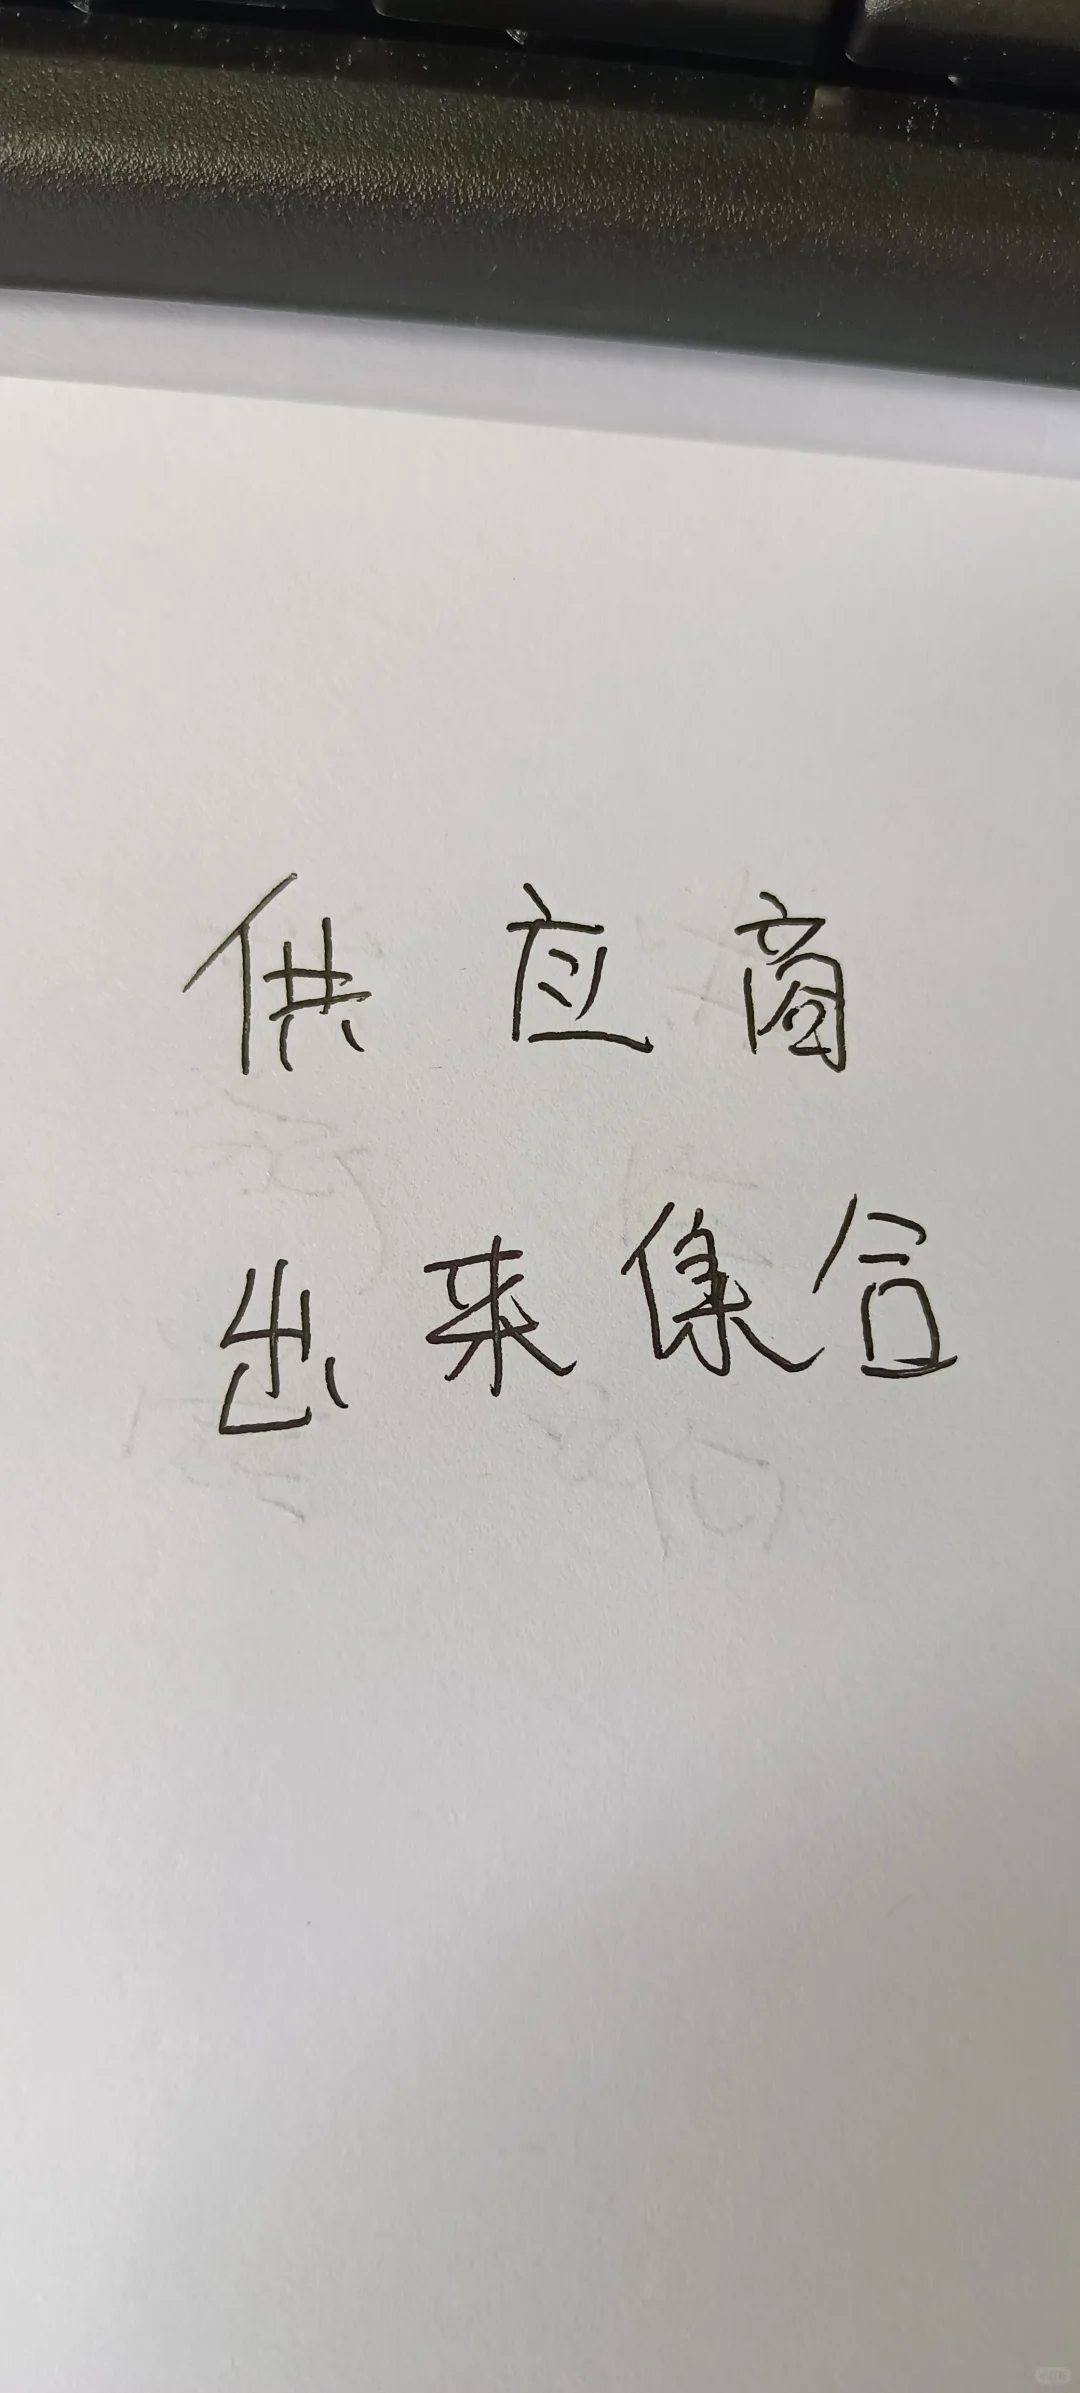 供应商
出来集合